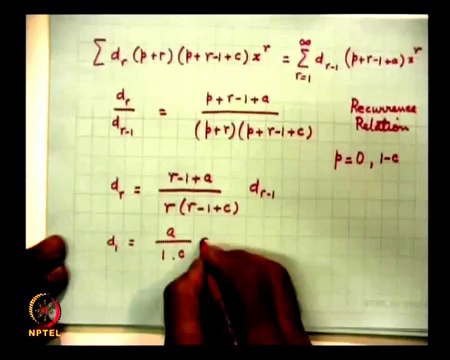 ∑ d_r (p+r) (p+r-1+c) x^r = ∑_{r=1}^{∞} d_{r-1} (p+r-1+a) x^r
d_r / d_{r-1} = (p+r-1+a) / ((p+r)(p+r-1+c))
Recurrence
Relation
p=0, 1-c
d_r = (r-1+a) / (r(r-1+c)) d_{r-1}
d_1 = a / (1.c)
NPTEL